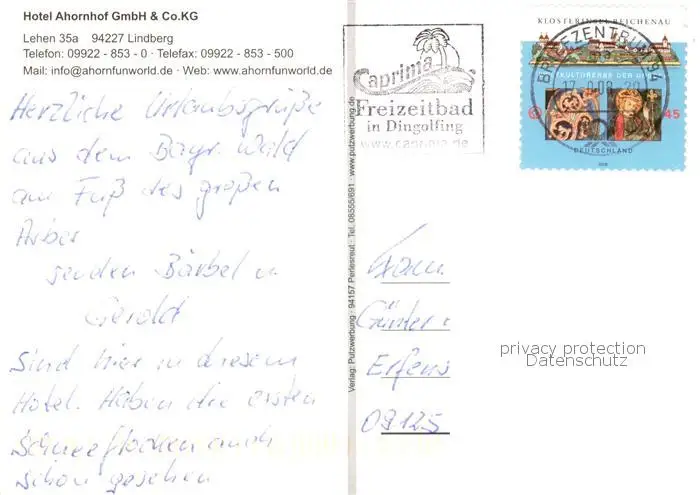 Hotel Ahornhof GmbH & Co.KG
Lehen 35a 94227 Lindberg
Telefon: 09922 - 853 - 0 · Telefax: 09922 - 853 - 500
Mail: info@ahornfunworld.de · Web: www.ahornfunworld.de
Herzliche Urlaubsgrüße
aus dem Bayr. Wald
am Fuß des großen
Arber
senden Bärbel u
Gerold
Sind hier in diesem
Hotel. Haben die ersten
Schneeflocken auch
schon gesehen
Verlag: Putzwerbung · 94157 Perlesreut · Tel. 08555/691 · www.putzwerbung.de
Caprima
Freizeitbad
in Dingolfing
www.caprima.de
KLOSTERINSEL REICHENAU
BRIEFZENTRUM 94
KULTURERBE DER
45
DEUTSCHLAND
2008
Fam.
Günter
09125
privacy protection
Datenschutz